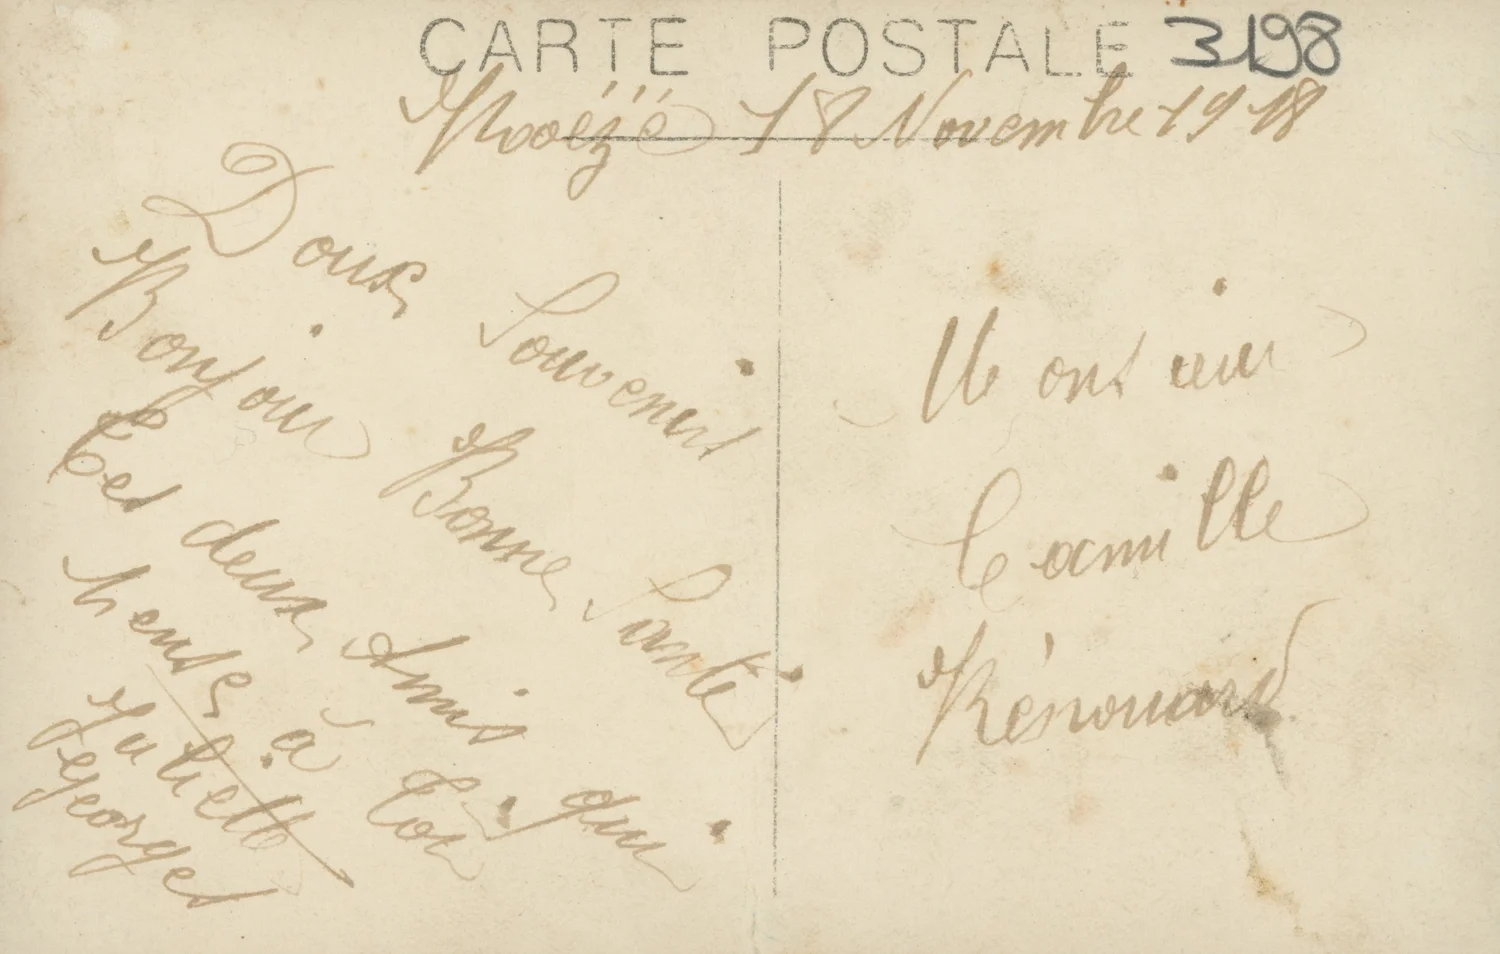 CARTE POSTALE 3198
Moëzé 18 Novembre 1918
Doux Souvenir
Bonjour Bonne Santé
Tes deux Amis qui
pense à Toi
Juliette
Georges
Monsieur
Camille
Rénouard